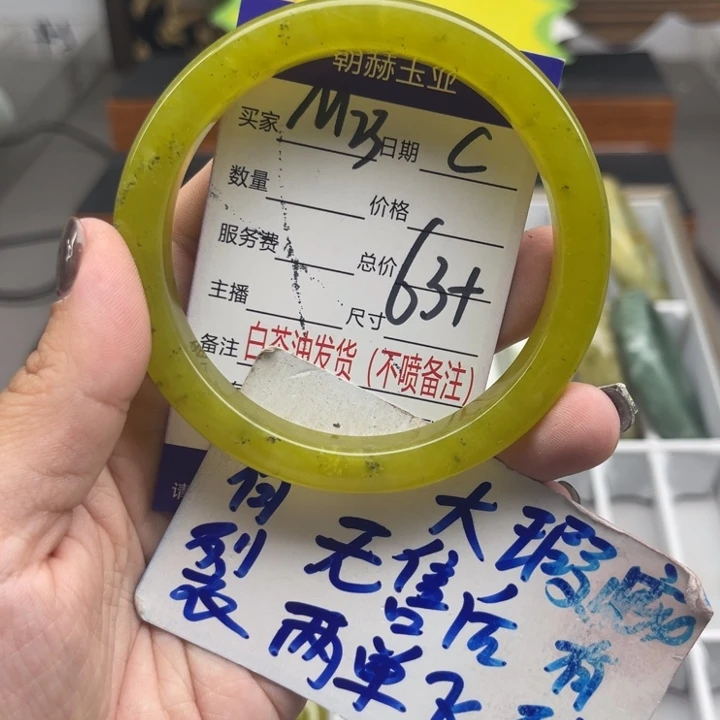 朝赫玉业
买家 MB 日期 C
数量 价格
服务费 总价
主播 尺寸 63+
备注 白茶油发货（不喷备注）
请
大瑕
无售后 有
裂 两单